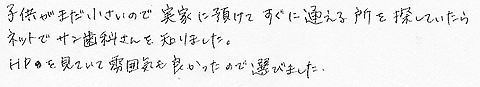 子供がまだ小さいので 実家に預けて すぐに通える所を探していたら
ネットで サン歯科さんを知りました。
HPを見ていて雰囲気も良かったので選びました.